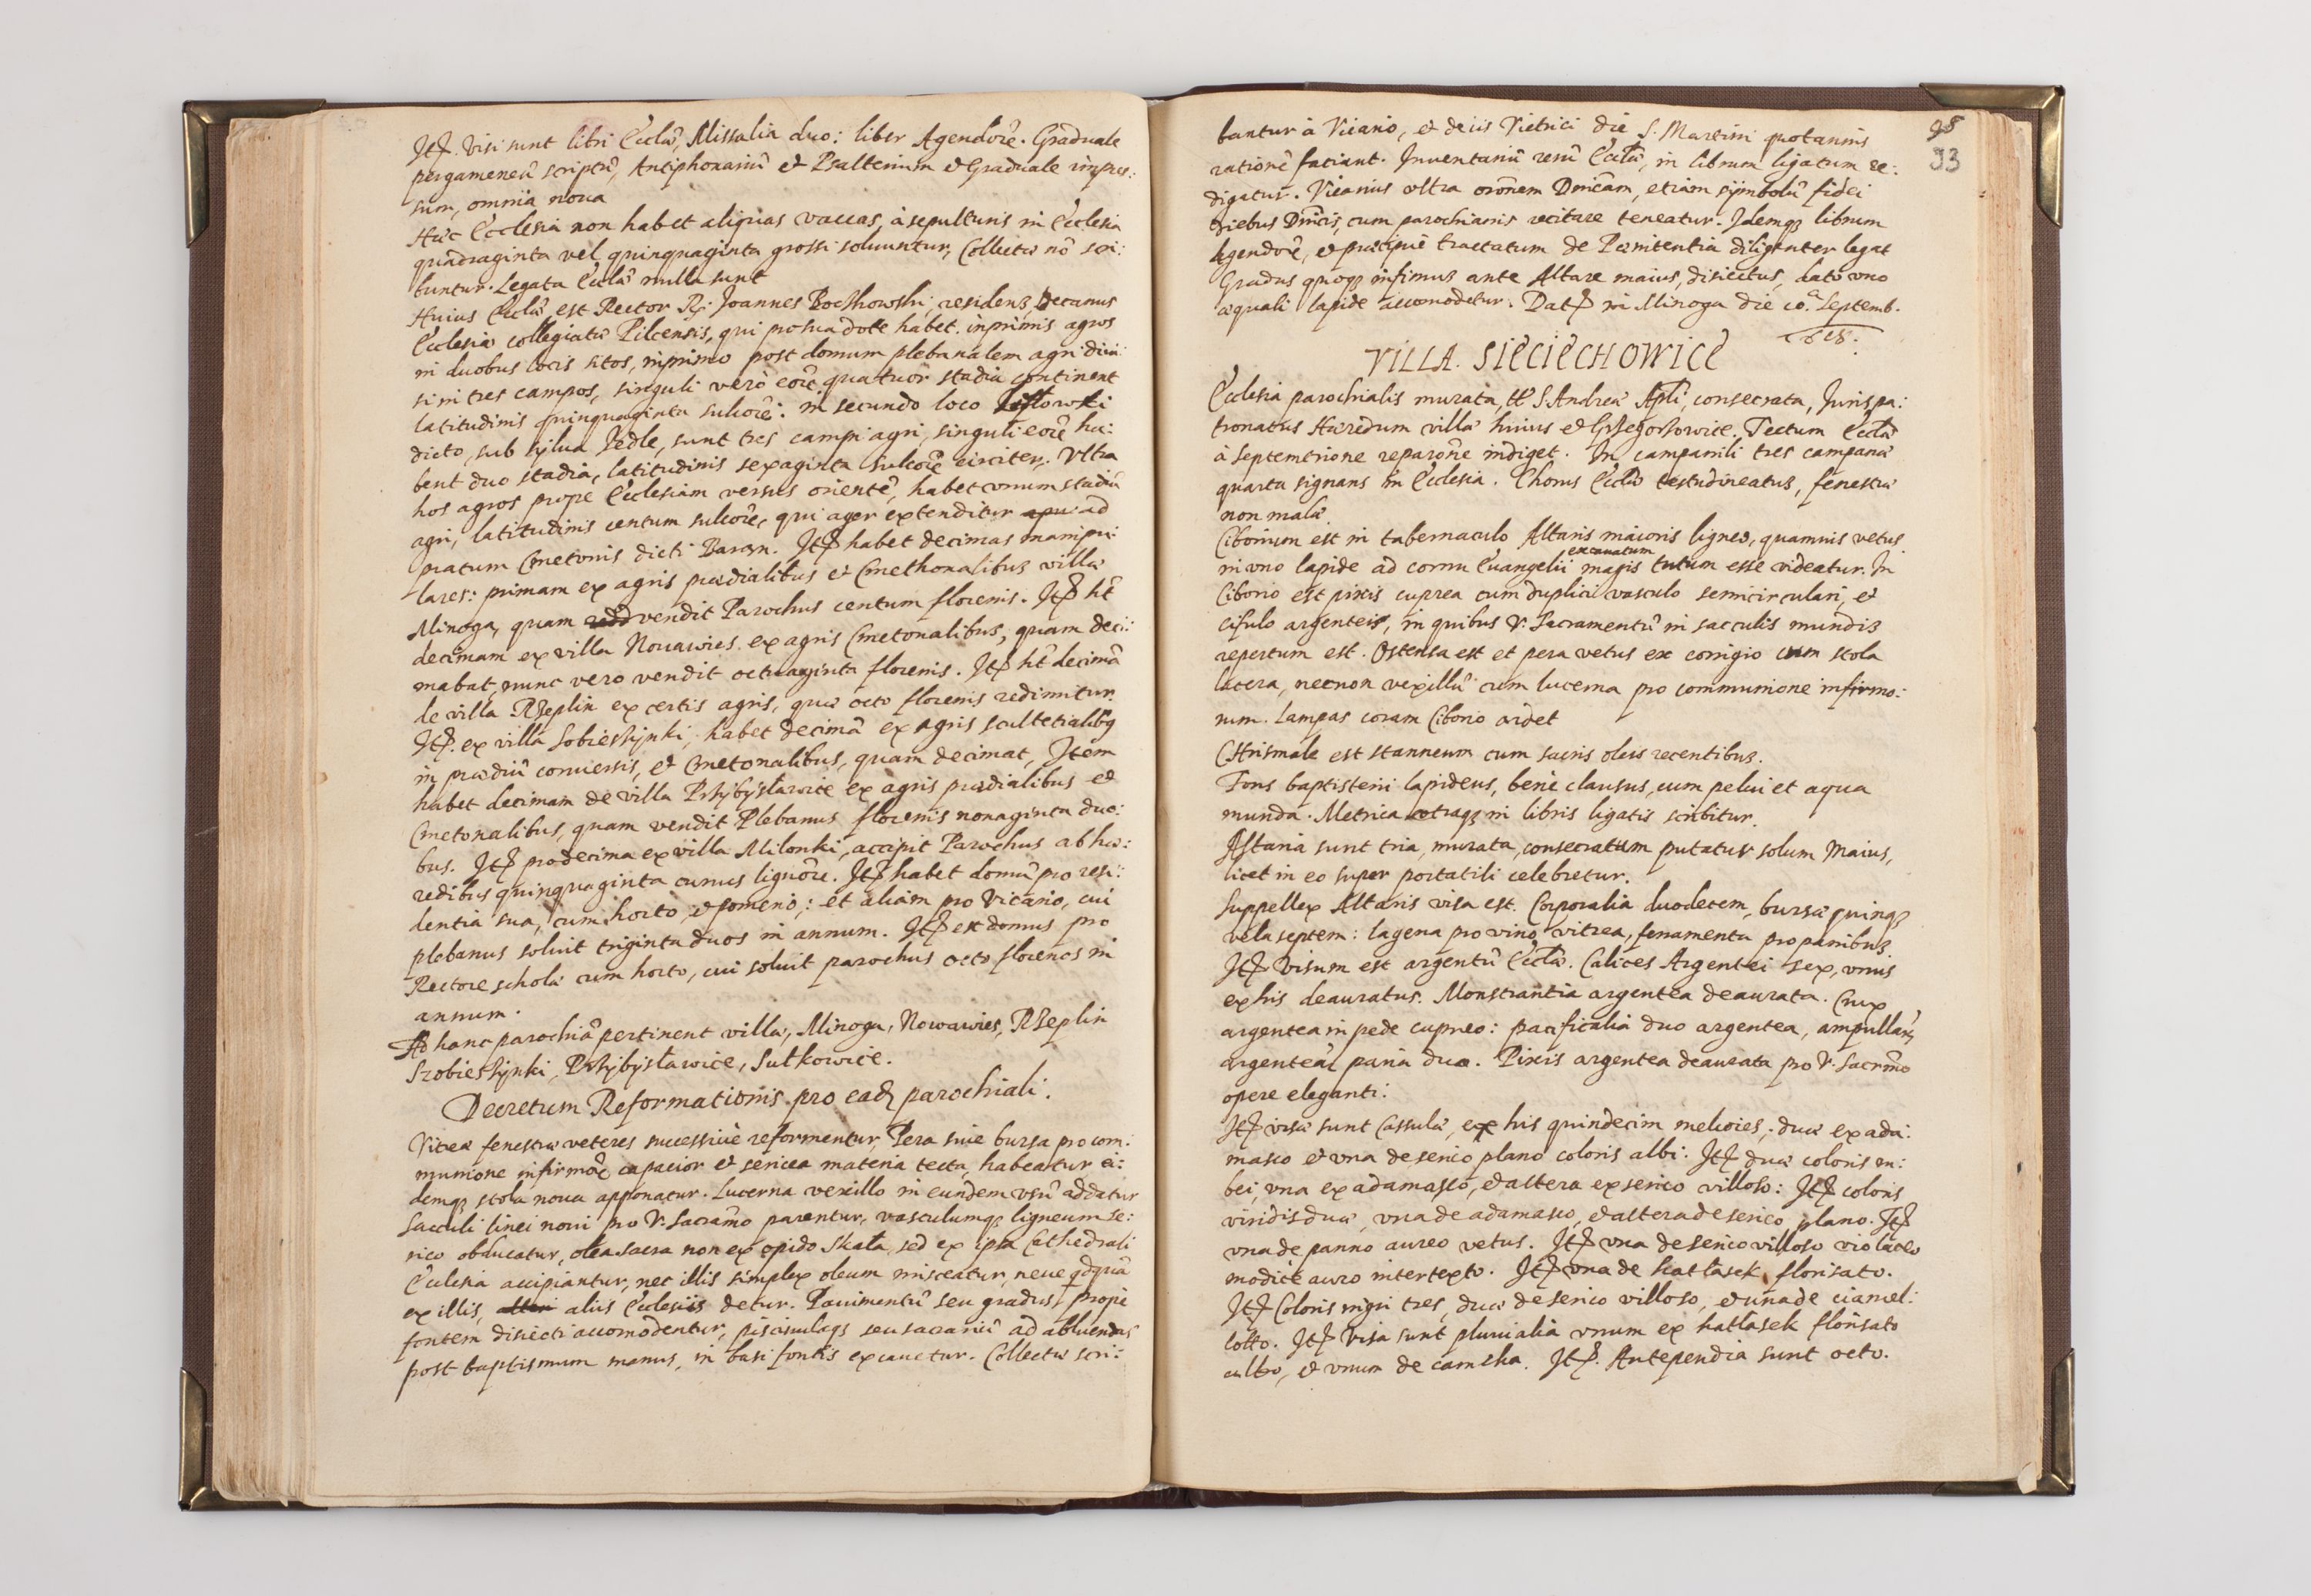 Itp. Visi sunt libri Eccłae, Missalia duo: liber Agendorẽ. Graduale
pergameneũ scriptũ, Antiphonariũ et Psalterium et Graduale impres:
sum, omnia noua
Haec Ecclesia non habet aliquas vaccas, à sepulturis in Ecclesia
quadraginta vel quinquaginta grossi soluuntur, Collectae nõ scri:
buntur. Legata Eccłae nulla sunt
Huius Eccłae est Rector R. Joannes Boczkowski, residens, Decanus
Ecclesiae collegiatae Pilcensis, qui pro sua dote habet inprimis agros
in duobus locis sitos, in primo post domum plebanalem agri diui:
si in tres campos, singuli verò eorẽ quatuor stadia continent
latitudinis quinquaginta sulcorẽ: in secundo loco
dicto, sub sylua Jedle, sunt tres campi agri, singuli eorẽ ha:
bent duo stadia, latitudinis sexaginta sulcorẽ circiter. Vltra
hos agros prope Ecclesiam versus orientẽ, habet vnum stadiũ
agri, latitudinis centum sulcorẽ, qui ager extenditur apu: ad
pratum Cmetonis dicti Baran. Itp habet decimas manipu:
lares: primam ex agris praedialibus et Cmethonalibus villae
Minoga, quam redd vendit Parochus centum florenis. Itp ht̃
decimam ex villa Nouawies ex agris Cmetonalibus, quam deci:
mabat, nunc vero vendit octuaginta florenis. Itp ht̃ decimã
de villa Rzeplin ex certis agris, quae octo florenis redimitur.
Itp. ex villa Sobieszynki, habet decimã ex agris scultetialibq
in praediũ conuersis, et Cmetonalibus, quam decimat, Item
habet decimam de villa Przybysławice ex agris praedialibus et
Cmetonalibus, quam vendit Plebanus florenis nonaginta duo:
bus. Itp pro decima ex villa Milonki, accipit Parochus ab hae:
redibus quinquaginta currus lignorẽ. Itp habet domũ pro resi:
dentia sua, cum horto, et pomerio,: et aliam pro Vicario, cui
plebanus soluit triginta duos in annum. Itp est domus pro
Rectore scholae cum horto, cui soluit parochus octo florenos in
annum.
Ad hanc parochiã pertinent villae, Minoga, Nowawies, Rzeplin
Szobieszynki, Przybysławice, Sułkowice.
Decretum Reformationis pro eadẽ parochiali.
Vitrea fenestrae veteres successiuè reformentur, Pera siue bursa pro com:
munione infirmorẽ capacior et sericea materia tecta, habeatur ei:
demq; stola noua apponatur. Lucerna vexillo in eundem vsũ addatur
Sacculi linei noui pro V. Sacrãmo parentur, vasculumq; ligneum se:
rico obducatur, olea sacra non ex opido Skała, sed ex ipsa Cathedrali
Ecclesia accipiantur, nec illis simplex oleum misceatur, neue qdquã
ex illis, alteri aliis Ecclesiis detur. Pauimentũ seu gradus, prope
fontem disiecti accomodentur, piscinulaq; seu sacrariũ ad abluendas
post baptismum manus, in basi fontis excauetur. Collectae scri:
98
93
bantur à Vicario, et de iis Vietrici die S. Martini quotannis
rationẽ faciant. Inuentariũ rerũ Eccłae, in librum ligatum re:
digatur. Vicarius vltra orõnem Dnicãm, etiam symbolũ fidei
diebus Dnicis, cum parochianis recitare teneatur. Idemq; librum
Agendorẽ, et praecipuè tractatum de Poenitentia diligenter legat
Gradus quoq; infimus ante Altare maius, disiectus, lato vno
aequali lapide accomodetur. Datp in Minoga die 10.a Septemb.
1618.
VILLA. SIECIECHOWICE
Ecclesia parochialis murata, tt̃ S. Andreae Apłi, consecrata, Juris pa:
tronatus Haeredum villae huius et Grzegorzowice. Tectum Eccłae
à septemtrione reparõne indiget. In campanili tres campanae
quarta signans in Ecclesia. Chorus Eccłae testudineatus, fenestrae
non malae.
Ciborium est in tabernaculo Altaris maioris ligneo, quamuis vetus
in vno lapide ad cornu Euangelii excauatum magis tutum esse videatur. In
Ciborio est pixis cuprea cum duplici vasculo semicirculari, et
cifulo argenteis, in quibus V. Sacramentũ in sacculis mundis
repertum est. Ostensa est et pera vetus ex corrigio cum stola
lacera, necnon vexillũ cum lucerna pro communione infirmo:
rum. Lampas coram Ciborio ardet
Chrismale est stanneum cum sacris oleis recentibus.
Fons baptisterii lapideus, benè clausus, cum pelui et aqua
munda. Metrica vtraq; in libris ligatis scribitur.
Altaria sunt tria, murata, consecratum putatur solum Maius,
licet in eo super portatili celebretur.
Suppellex Altaris visa est. Corporalia duodecem, bursae quinq;
vela septem: lagena pro vino vitrea, feramenta pro panibus.
Itp visum est argentũ Eccłae. Calices Argentei sex, vnus
ex his deauratus. Monstrantia argentea deaurata. Crux
argentea in pede cupreo: pacificalia duo argentea, ampullarẽ
argenteae paria duo. Pixis argentea deaurata pro V. Sacrm̃o
opere eleganti.
Itp visae sunt Cassulae, ex his quindecim meliores,: duae ex ada:
masco et vna de serico plano coloris albi. Itp duae coloris ru:
bei, vna ex adamasco, et altera ex serico villoso: Itp coloris
viridis duae, vna de adamasco, et altera de serico plano. Itp
vna de panno aureo vetus. Itp vna de serico villoso violaceo
modicè auro intertexto. Itp vna de hatłasek florisato.
Itp Coloris nigri tres, duae de serico villoso, et vna de ciamel:
lotto. Itp Visa sunt pluuialia vnum ex hatłasek florisato
albo, et vnum de camcha. Itp. Antependia sunt octo.